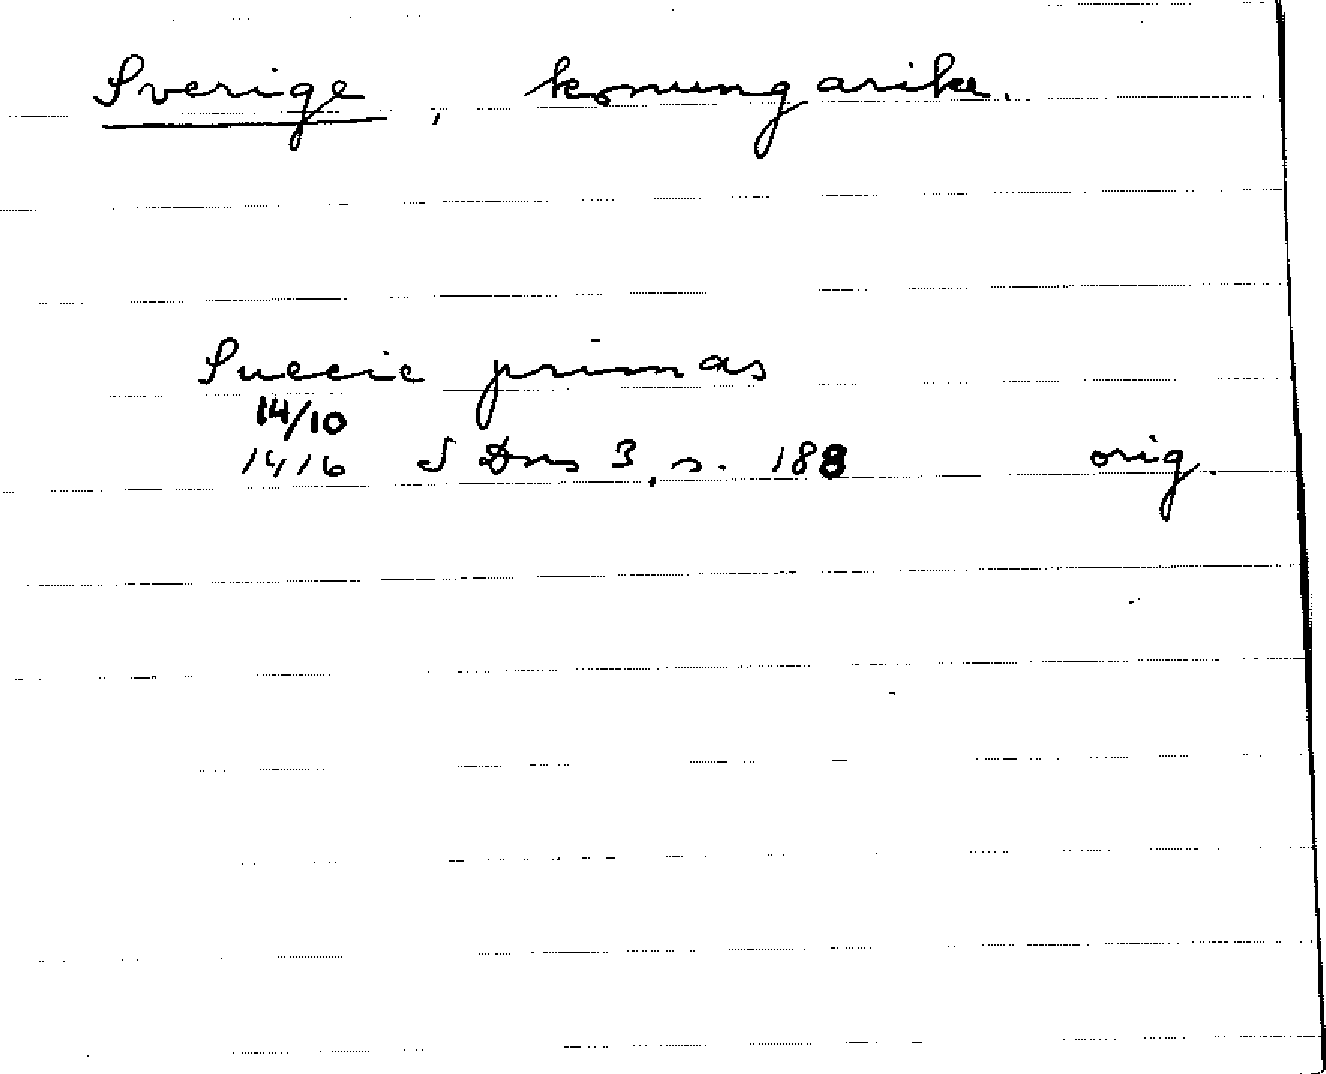 Sverige, konungarike.
Suecie primas
14/10
1416 S Dns 3, s. 188 orig.